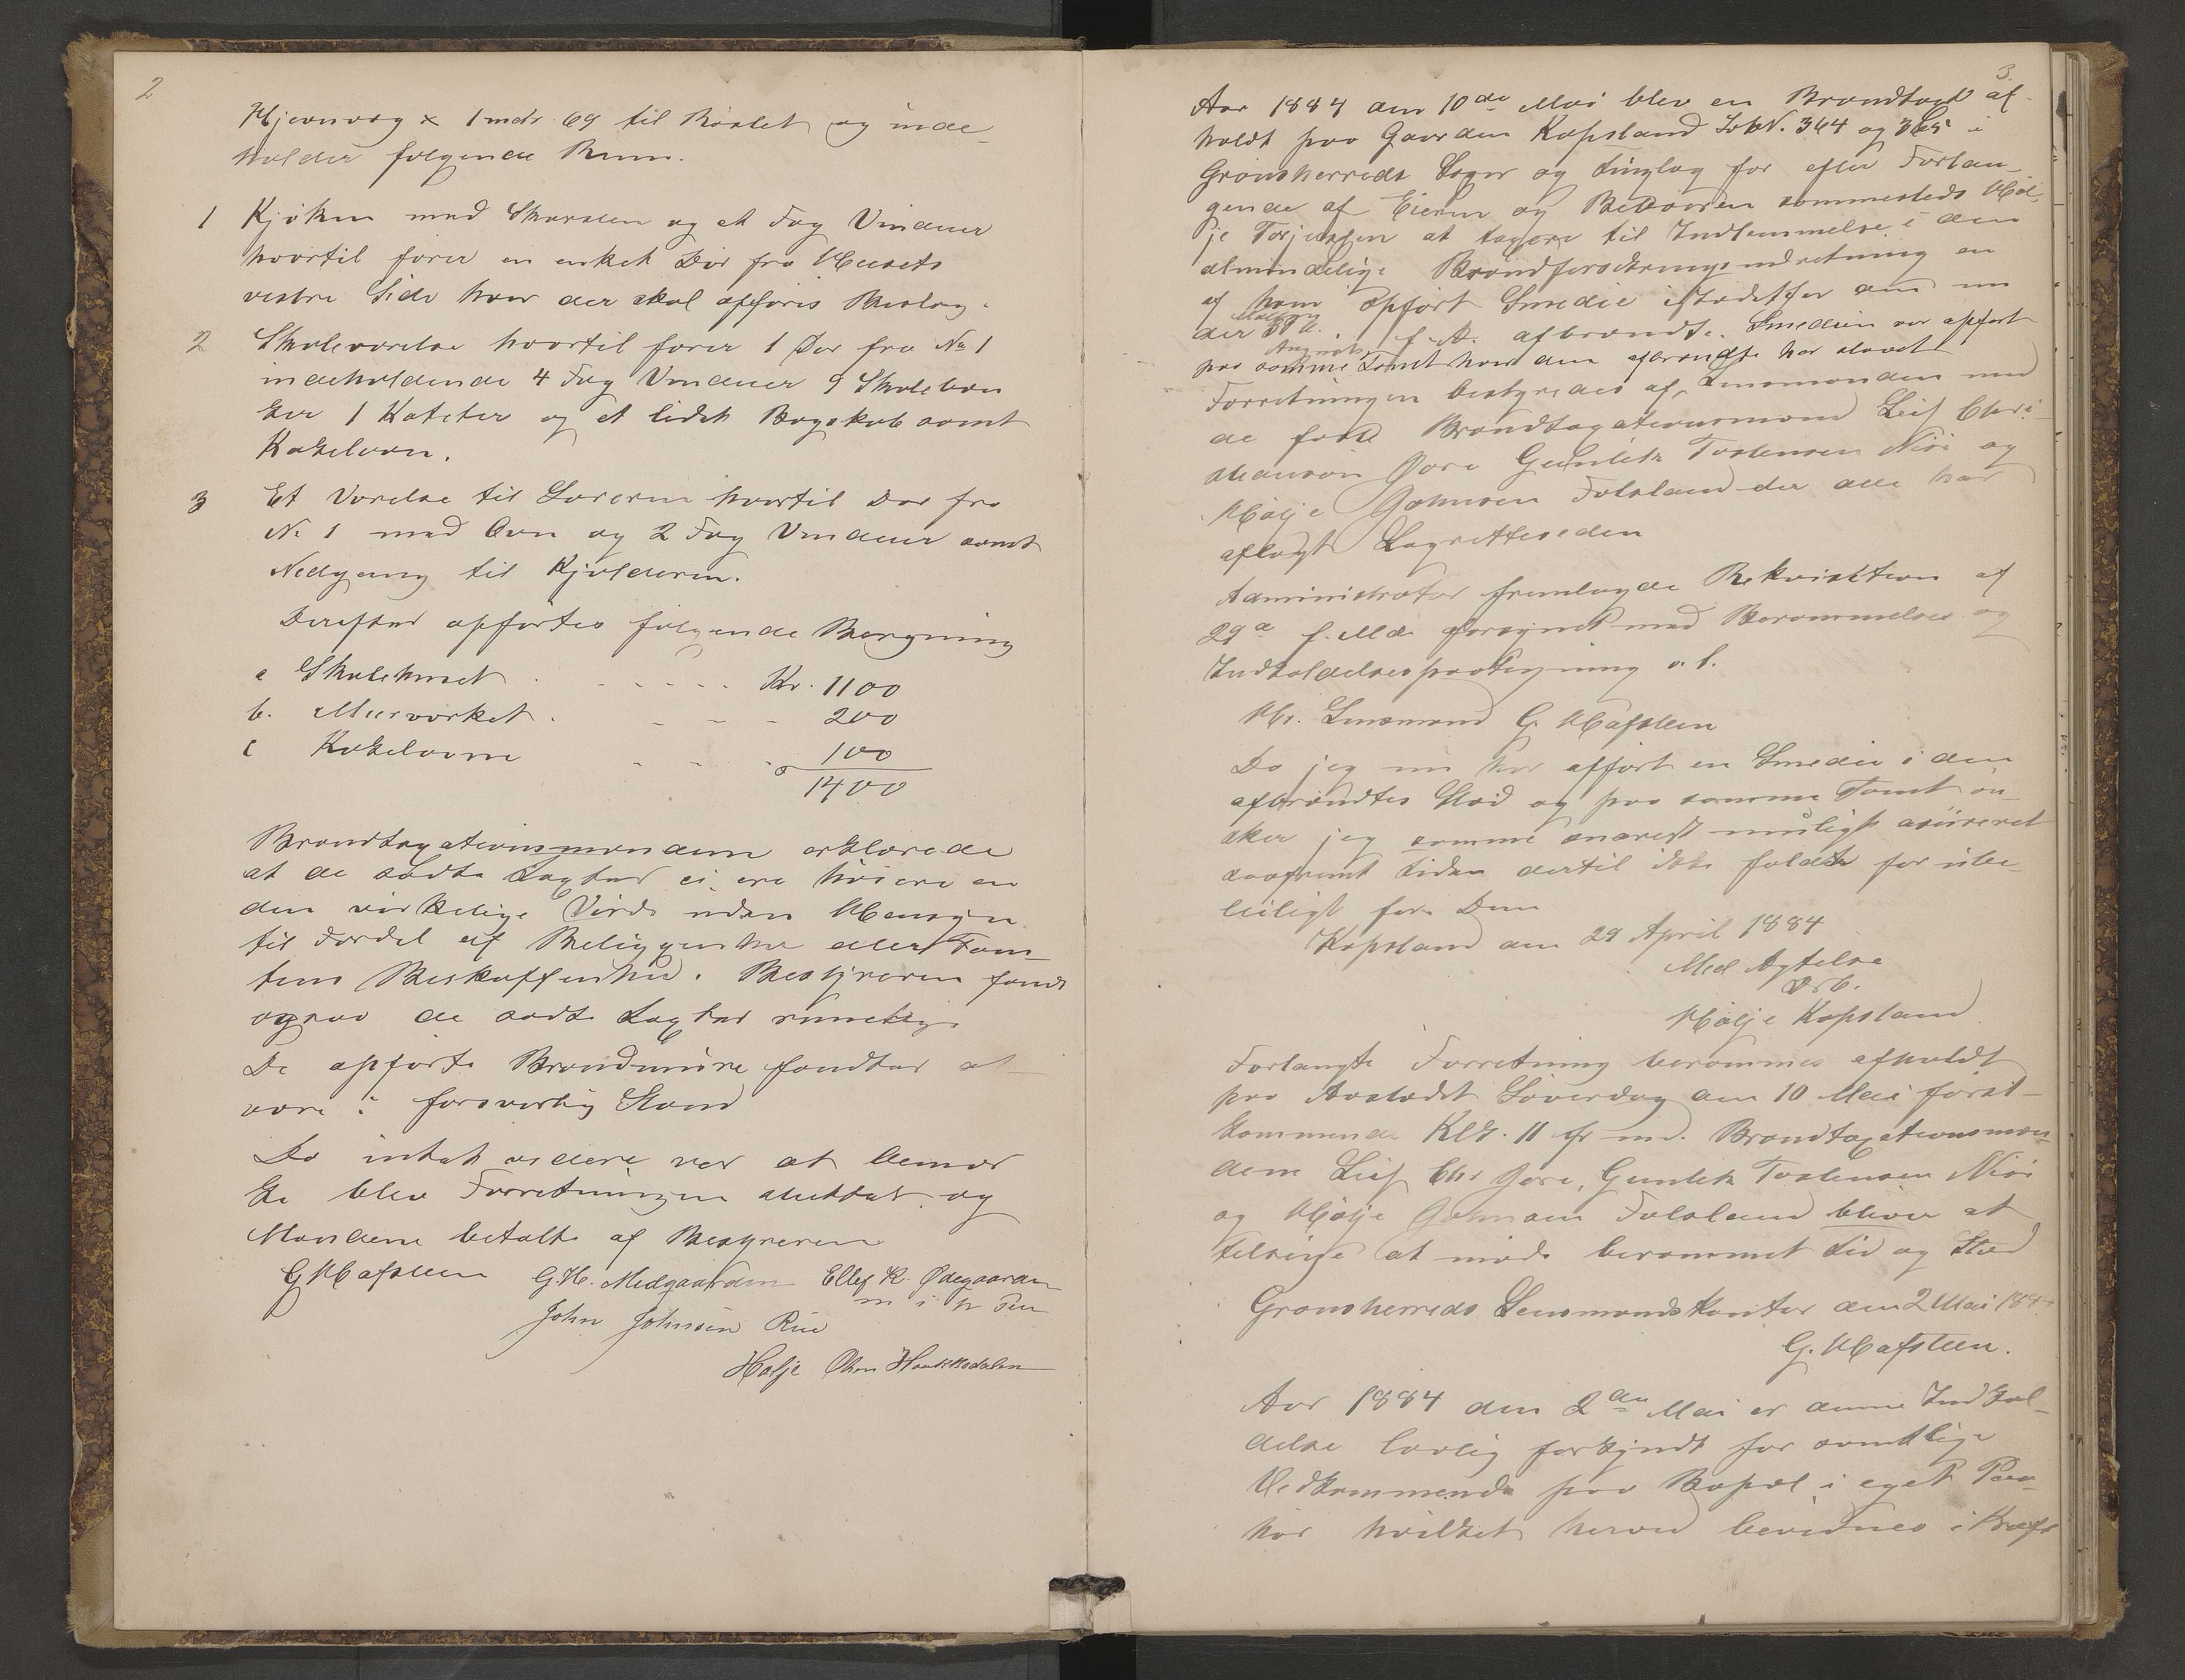 2
Hjørnevæg x 1 mdr 69 til Røstet og inde-
holder følgende Rum.
1 Kjøken med Skorsten og et Fag Vinduer
hvortil fører en enkelt Dør fra Husets
vestre Side hvor der skal opføres Bislag.
2 Skoleværelse hvortil fører 1 Dør fra No 1
indeholdende 4 Fag Vinduer 9 Skolebæn
ker 1 Kateter og et lidet Bogskab samt
Kakelovn.
3 Et Værelse til Læreren hvortil Dør fra
No 1 med Ovn og 2 Fag Vinduer samt
Nedgang til Kjelderen.
Derefter opførtes følgende Beregning
a Skolehuset . - - - - - Kr. 1100
b. Murværket . - - - 200
c Kakelovne - - - 100
1400
Brandtaxationsmændene erklærede
at de satte Taxter ei ere høiere en
den virkelige Værdi uden Hensyn
til Fordel af Beliggenhed eller Tom-
tens Beskaffenhed. Bestyreren fandt
ogsaa de satte Taxter rimelig.
De opførte Brandmure fandtes at
være i forsvarlig Stand
Da intet videre var at bemær
ke blev Forretningen sluttet og
Mændene betalt af Bestyreren
G Hafsteen G. H. Medgaarden Ellef K. Ødegaarden
m i p Pen
John Johnsen Rue
Halje Olsen Haukkedalen
3.
Aar 1884 den 10de Mai blev en Brandtaxt af-
holdt paa Gaarden Kopsland Lb N. 364 og 365 i
Gransherreds Sogn og Tinglag for efter Forlan-
gende af Eieren og Beboeren sammesteds Høl-
je Torjussen at taxere til Indlemmelse i den
almindelige Brandforsikringsindretning en
af ham opført Smedie istedetfor den un
der f. A. afbrændte. Smedien var opført
paa samme Tomt hvor den afbrændte har staaet
Forretningen bestyredes af Lensmanden med
de faste Brandtaxationsmænd Leif Chri-
stensen Gunlek Torstensen og
Hølje Johnsen Folsland der alle har
aflagt Lagretteseden
Administrator fremlagde Rekvisition af
29de f. Md. forsynet med Berammelse og
Indkaldelsespaategning s. l.
Hr. Lensmand G. Hafsteen
Da jeg nu har opført en Smedie i den
afbrændtes Sted og paa samme Tomt øn-
sker jeg samme snarest muligt asureret
saafremt tiden dertil ikke falder for ube-
leiligt for Dem
Kopsland den 29 April 1884
Med Agtelse
Ærb.
Hølje Kopsland
Forlangte Forretning berammes afholdt
paa Aastedet Løverdag den 10 Mai først-
kommende Klk. 11 fr md. Brandtaxationsmæn-
dene Leif Chr , Gunlek Torstensen
og Hølje Johnsen Folsland bliver at
tilsige at møde berammet Tid og Sted
Gransherreds Lensmandskontor den 2 Mai 1884
G. Hafsteen.
Aar 1884 den 2den Mai er denne Indkal-
delse lovlig forkyndt for samtlige
Vedkommende paa Bopæl i eget Paa-
hør hvilket herved bevidnes i Kraft